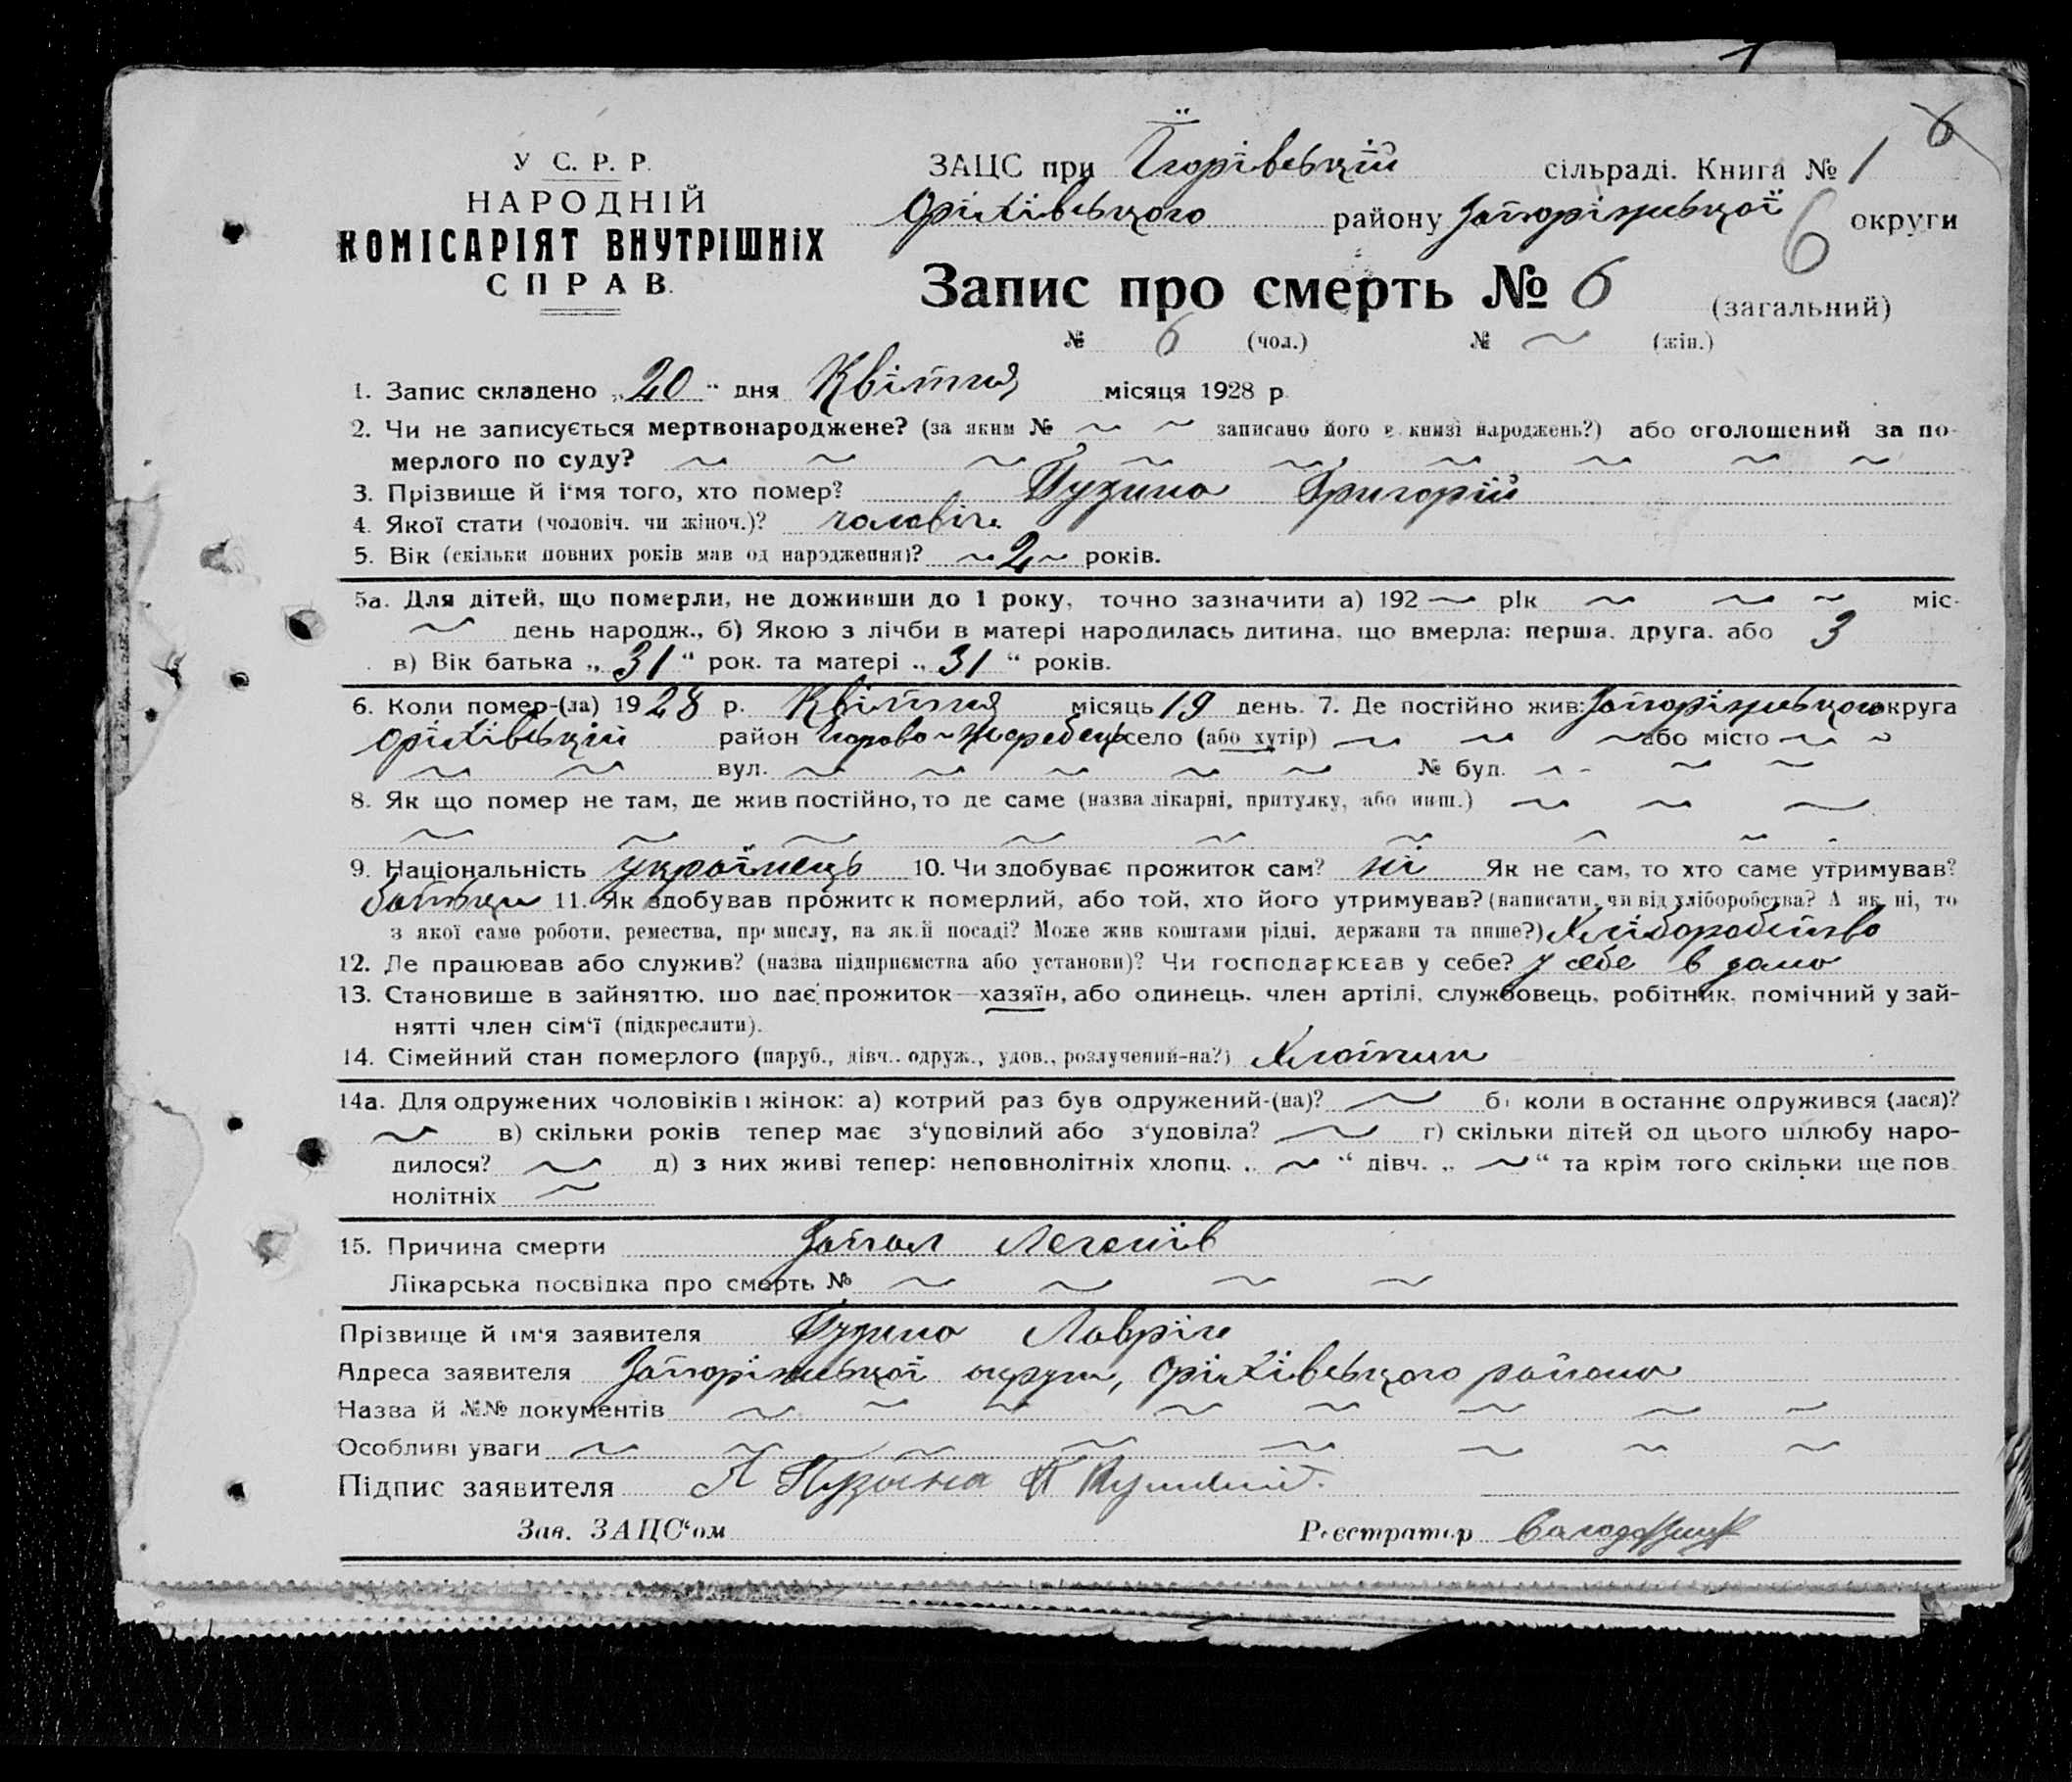 6
У С. Р. Р.
НАРОДНІЙ
КОМІСАРІЯТ ВНУТРІШНІХ
СПРАВ.
ЗАЦС при сільраді. Книга № 1
Оріхівського району Запоріжської округи
6
Запис про смерть № 6 (загальний)
№ 6 (чол.) № ~ (жін.)
1. Запис складено „20“ дня Квітня місяця 1928 р.
2. Чи не записується мертвонароджене? (за яким № ~ ~ записано його в книзі народжень?) або оголошений за по-
мерлого по суду? ~ ~ ~ ~ ~ ~ ~ ~ ~
3. Прізвище й і'мя того, хто помер? Пузина Григорій
4. Якої стати (чоловіч. чи жіноч.)? чоловіч.
5. Вік (скільки повних років мав од народження)? ~ 2 ~ років.
5а. Для дітей, що померли, не доживши до 1 року, точно зазначити а) 192 ~ рік ~ ~ ~ міс.
~ день народж., б) Якою з лічби в матері народилась дитина, що вмерла: перша, друга, або 3
в) Вік батька „31“ рок. та матері „31“ років.
6. Коли помер-(ла) 1928 р. Квітня місяць 19 день. 7. Де постійно жив: Запоріжського округа
Оріхівський район село (або хутір) ~ ~ ~ або місто ~ ~
~ ~ вул. ~ ~ ~ ~ ~ № буд. ~ - ~ ~
8. Як що помер не там, де жив постійно, то де саме (назва лікарні, притулку, або инш.) ~ ~ ~
~ ~ ~ ~ ~ ~ ~ ~ -
9. Національність українець 10. Чи здобуває прожиток сам? ні Як не сам, то хто саме утримував?
батьки 11. Як здобував прожиток померлий, або той, хто його утримував? (написати, чи від хліборобства? А як ні, то
з якої саме роботи, ремества, промислу, на якій посаді? Може жив коштами рідні, держави та инше?) Хліборобство
12. Де працював або служив? (назва підприємства або установи)? Чи господарював у себе? у себе в дома
13. Становище в зайняттю, що дає прожиток—хазяїн, або одинець, член артілі, службовець, робітник, помічний у зай-
нятті член сім'ї (підкреслити).
14. Сімейний стан померлого (паруб., дівч., одруж., удов., розлучений-на?) Хлопчик
14а. Для одружених чоловіків і жінок: а) котрий раз був одружений-(на)? ~ б) коли востаннє одружився (лася)?
~ в) скільки років тепер має з'удовілий або з'удовіла? ~ г) скільки дітей од цього шлюбу наро-
дилося? ~ д) з них живі тепер: неповнолітніх хлопц. „ ~ “ дівч. „ ~ “ та крім того скільки ще пов-
нолітніх ~
15. Причина смерти Запал Легенів
Лікарська посвідка про смерть № ~ ~ ~ ~
Прізвище й ім'я заявителя Пузина Лавріч
Адреса заявителя Запоріжської округи, Оріхівського району
Назва й №№ документів ~ ~ ~ ~ ~ ~ ~ ~
Особливі уваги ~ ~ ~ ~ ~ ~ ~ ~
Підпис заявителя Л Пузына
Зав. ЗАЦС'ом Реєстратор